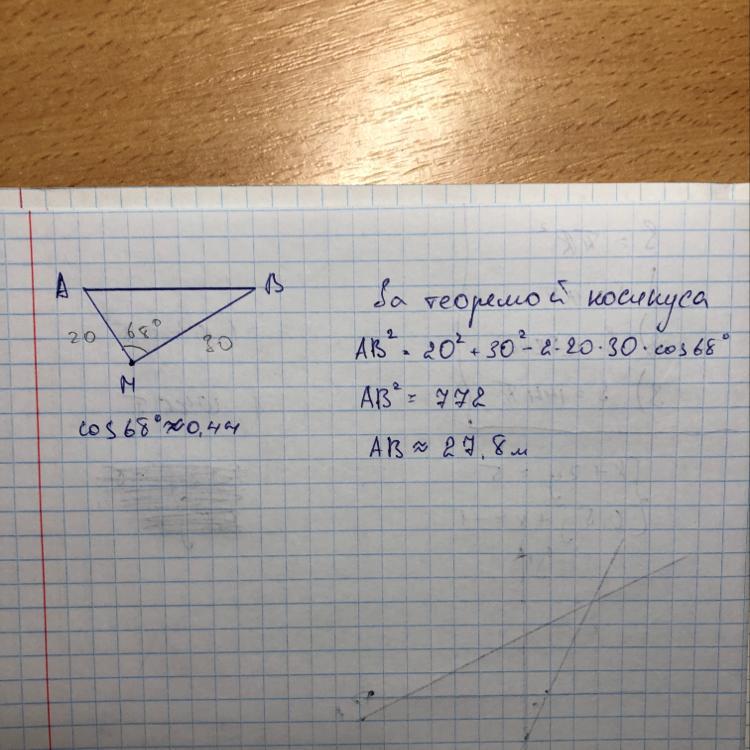 A B
20 68° 30
M
cos 68° ≈ 0,44
За теоремой косинуса
AB² = 20² + 30² - 2·20·30·cos 68°
AB² = 772
AB ≈ 27,8 м